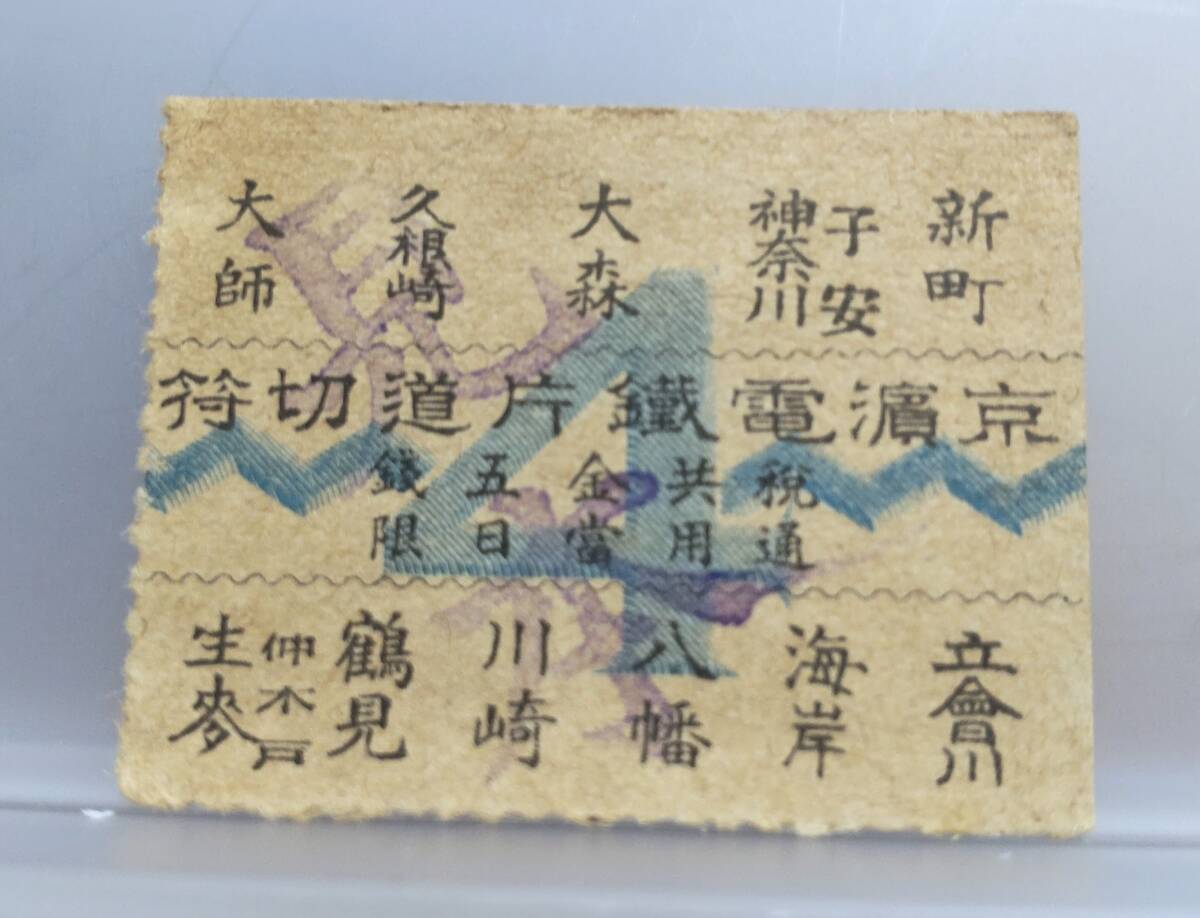 新町
子安
神奈川
大森
久根崎
大師
京濱電鐵片道切符
税共金五錢
通用當日限
4
立會川
海岸
八幡
川崎
鶴見
仲木戸
生麥